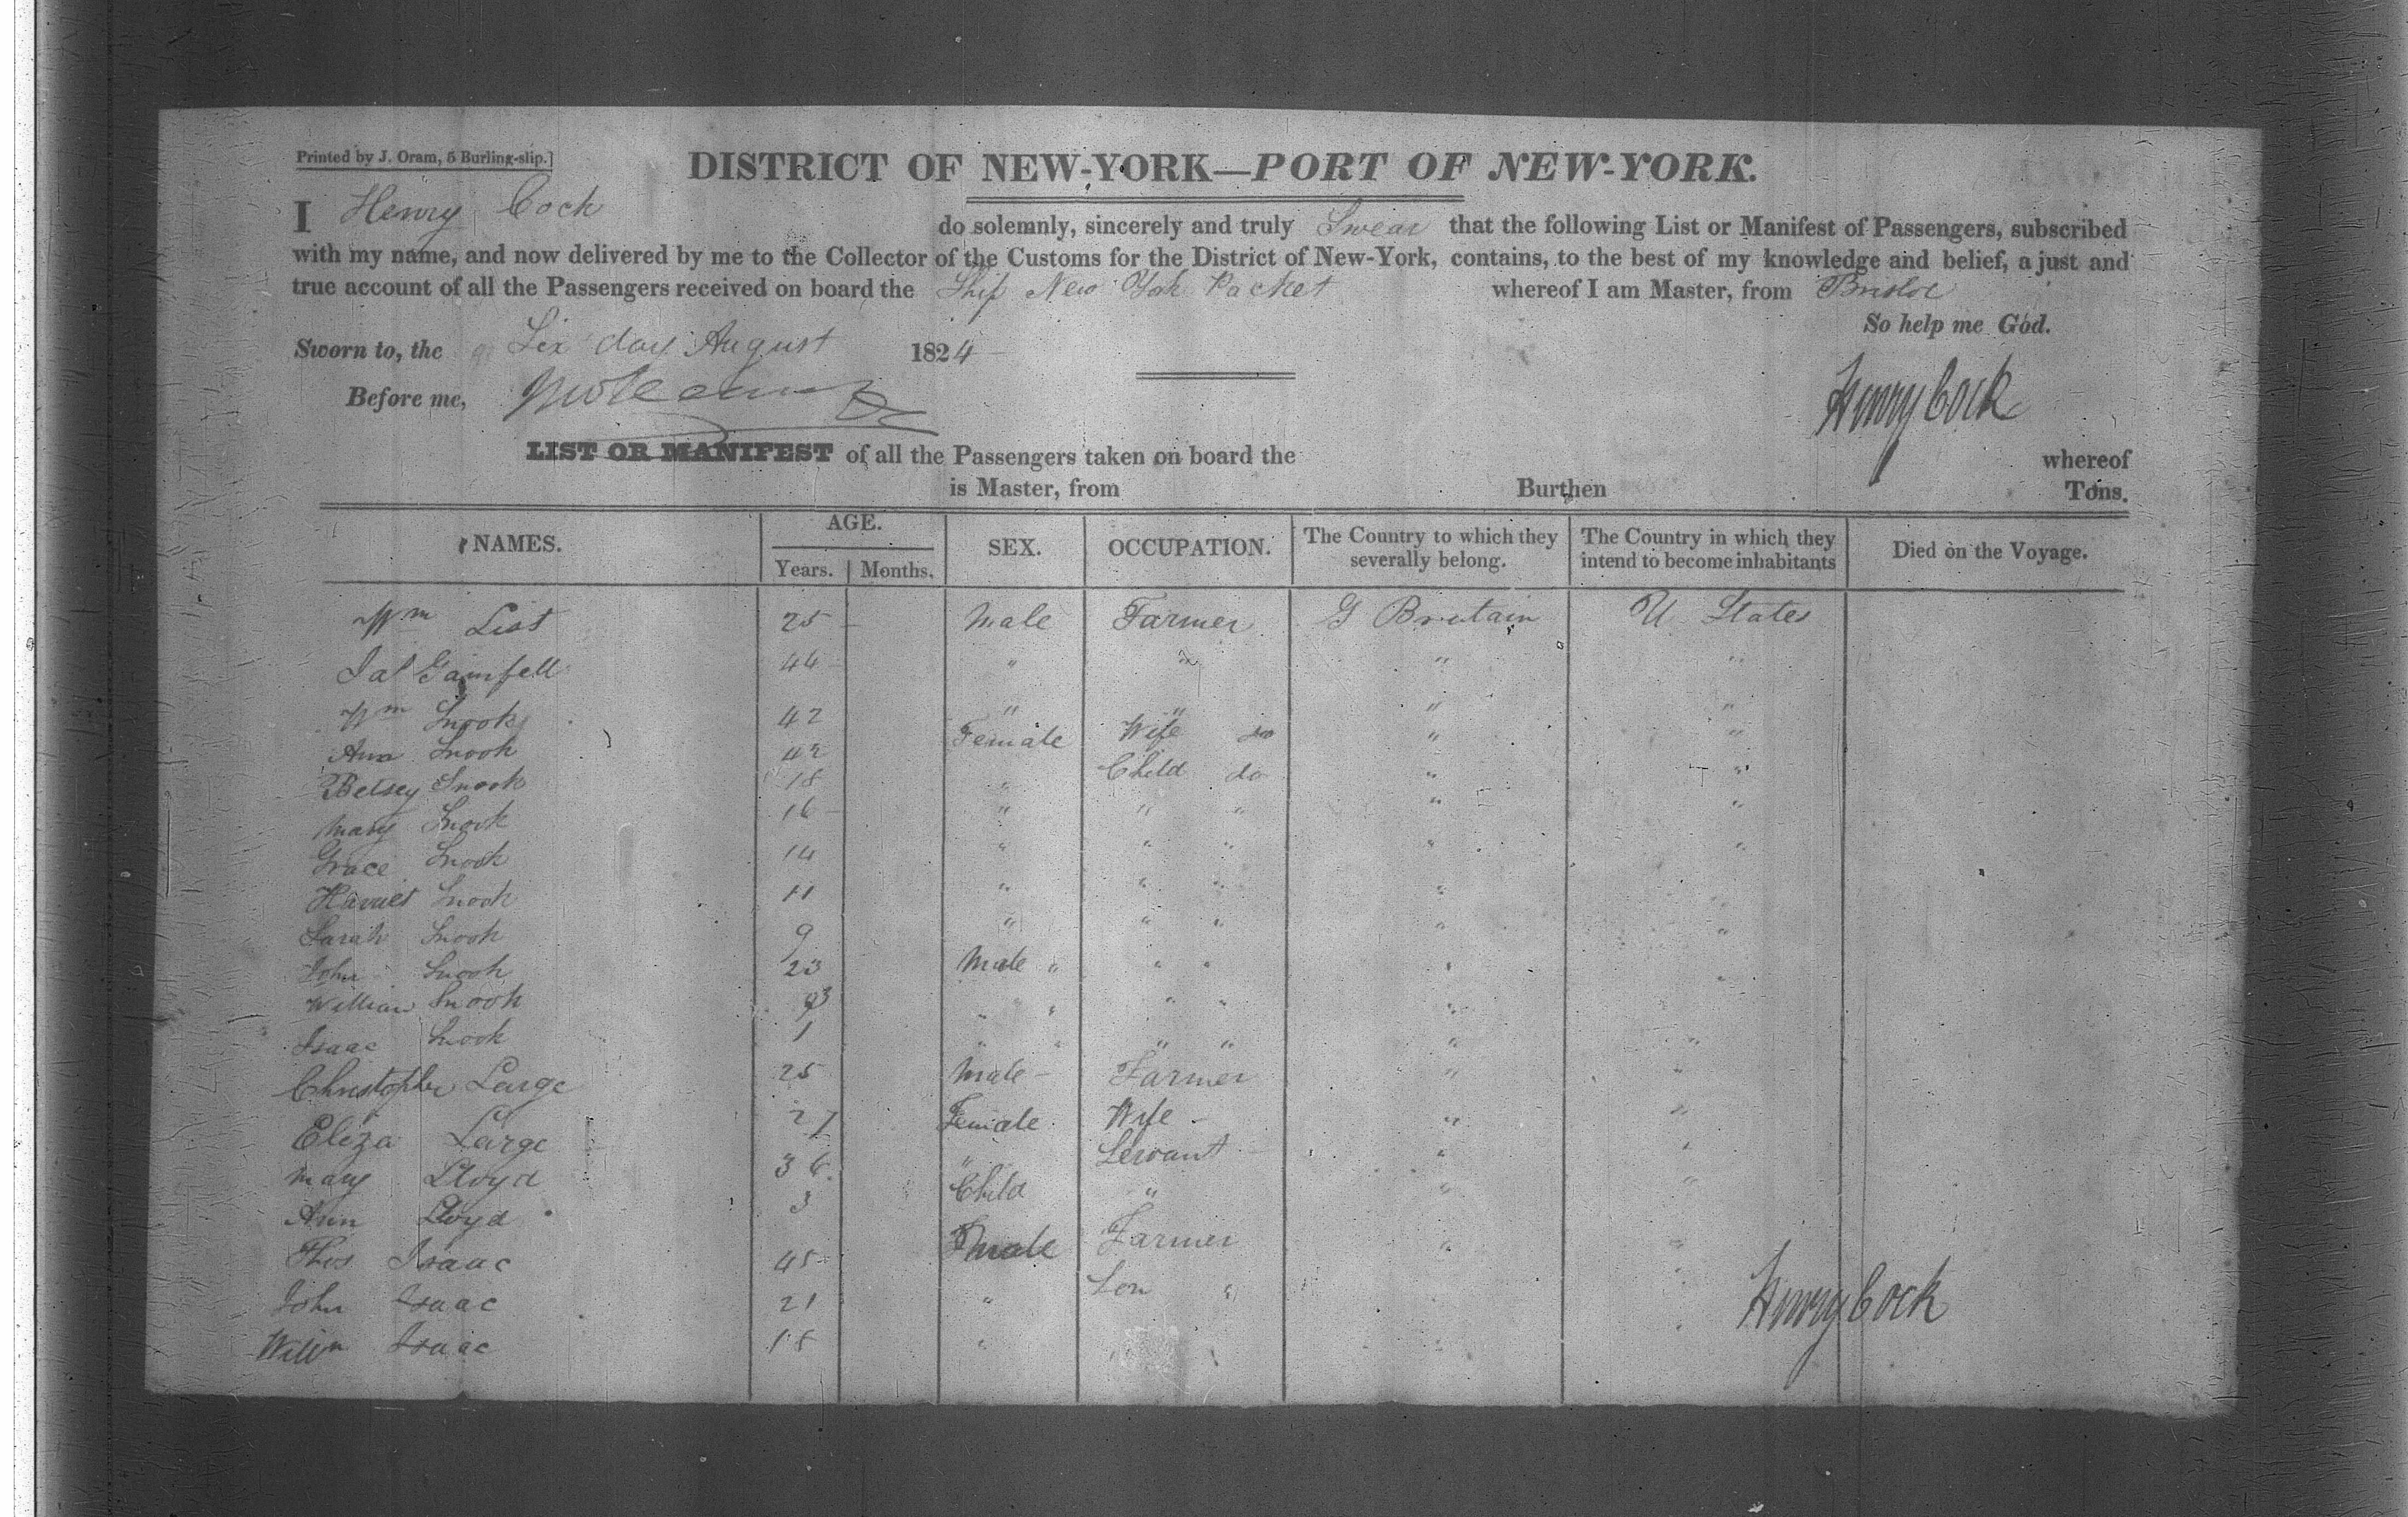 Printed by J. Oram, 5 Burling-slip.]
DISTRICT OF NEW-YORK—PORT OF NEW-YORK.
I Henry Cock do solemnly, sincerely and truly Swear that the following List or Manifest of Passengers, subscribed
with my name, and now delivered by me to the Collector of the Customs for the District of New-York, contains, to the best of my knowledge and belief, a just and
true account of all the Passengers received on board the Ship New York Packet whereof I am Master, from Bristol
So help me God.
Sworn to, the Six day August 1824
Before me,
Henry Cock
LIST OR MANIFEST of all the Passengers taken on board the whereof
is Master, from Burthen Tons.
NAMES. AGE. Years. Months. SEX. OCCUPATION. The Country to which they severally belong. The Country in which they intend to become inhabitants Died on the Voyage.
Wm List 25 Male Farmer G Britain U States
Jas Gainfell 44 " " " "
Wm Snook 42 " " " "
Ann Snook 42 Female Wife do " "
Betsey Snook 18 " Child do " "
Mary Snook 16 " " " " "
Grace Snook 14 " " " " "
Harriet Snook 11 " " " " "
Sarah Snook 9 " " " " "
John Snook 23 Male " " " " "
William Snook " " " " " "
Isaac Snook 1 " " " " " "
Christopher Large 25 Male Farmer " "
Eliza Large 21 Female Wife " "
Mary Lloyd 36 " Servant " "
Ann Lloyd 3 Child " " "
Thos Isaac 45 male Farmer " "
John Isaac 21 " Son " "
Willm Isaac 18 " " " "
Henry Cock